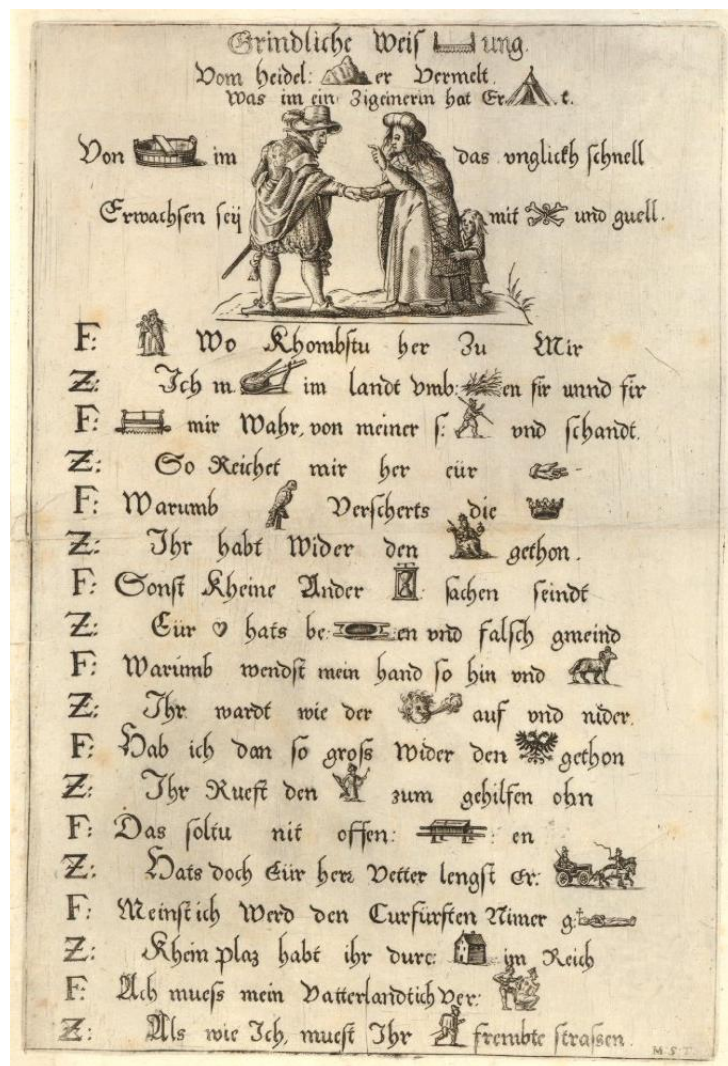 Grindliche Weis ung.
Vom Heidel: er Vermelt.
Was im ein Zigeinerin hat Er t.
Von im das vnglickh schnell
Erwachsen seÿ mit und quell.
F: Wo Khombstu her Zu Mir
Z: Ich m. im landt vmb: en fir unnd fir
F: mir Wahr, von meiner s: vnd schandt.
Z: So Reichet mir her eür
F: Warumb Verscherts die
Z: Ihr habt Wider den gethon.
F: Sonst Kheine Ander sachen seindt
Z: Eür hats be: en vnd falsch gmeind
F: Warumb wendst mein hand so hin vnd
Z: Ihr wardt wie der auf vnd nider.
F: Hab ich dan so gross Wider den gethon
Z: Ihr Rueft den zum gehilfen ohn
F: Das soltu nit offen: en
Z: Hats doch Eür herr Vetter lengst Er:
F: Meinst ich Werd den Curfürsten Nimer g:
Z: Khein plaz habt ihr durc: im Reich
F: Ach muess mein Vatterlandt ich Ver:
Z: Als wie Ich, muest Ihr frembte strassen.
M. S. T.